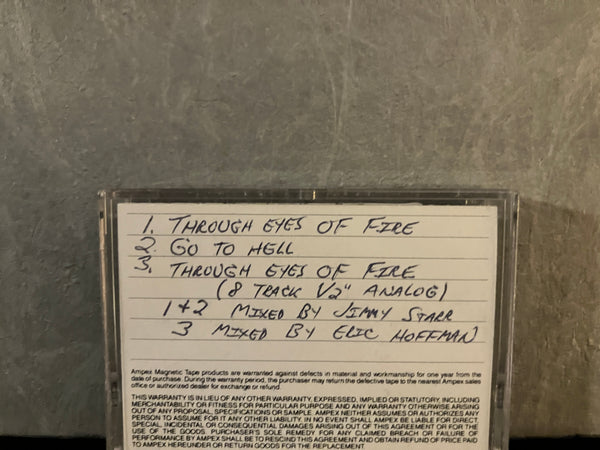 1. THROUGH EYES OF FIRE
2. GO TO HELL
3. THROUGH EYES OF FIRE
(8 TRACK 1/2" ANALOG)
1+2 MIXED BY JIMMY STARR
3 MIXED BY ERIC HOFFMAN
Ampex Magnetic Tape products are warranted against defects in material and workmanship for one year from the
date of purchase. During the warranty period, the purchaser may return the defective tape to the nearest Ampex sales
office or authorized dealer for exchange or refund.
THIS WARRANTY IS IN LIEU OF ANY OTHER WARRANTY, EXPRESSED, IMPLIED OR STATUTORY, INCLUDING
MERCHANTABILITY OR FITNESS FOR PARTICULAR PURPOSE AND ANY WARRANTY OTHERWISE ARISING
OUT OF ANY PROPOSAL, SPECIFICATIONS OR SAMPLE. AMPEX NEITHER ASSUMES OR AUTHORIZES ANY
PERSON TO ASSUME FOR IT ANY OTHER LIABILITY. IN NO EVENT SHALL AMPEX BE LIABLE FOR DIRECT,
SPECIAL, INCIDENTAL OR CONSEQUENTIAL DAMAGES ARISING OUT OF THIS AGREEMENT OR FOR THE
USE OF THE GOODS. PURCHASER'S SOLE REMEDY FOR ANY CLAIMED BREACH OR FAILURE OF
PERFORMANCE BY AMPEX SHALL BE TO RESCIND THIS AGREEMENT AND OBTAIN REFUND OF PRICE PAID
TO AMPEX HEREUNDER OR RETURN GOODS FOR THE REPLACEMENT.